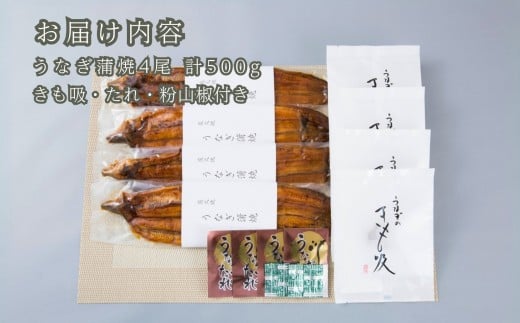 お届け内容
うなぎ蒲焼4尾 計500g
きも吸・たれ・粉山椒付き
うなぎ蒲焼
うなぎ蒲焼
うなぎ蒲焼
炭火焼
うなぎ蒲焼
うなぎの
きも吸
うなぎ
たれ